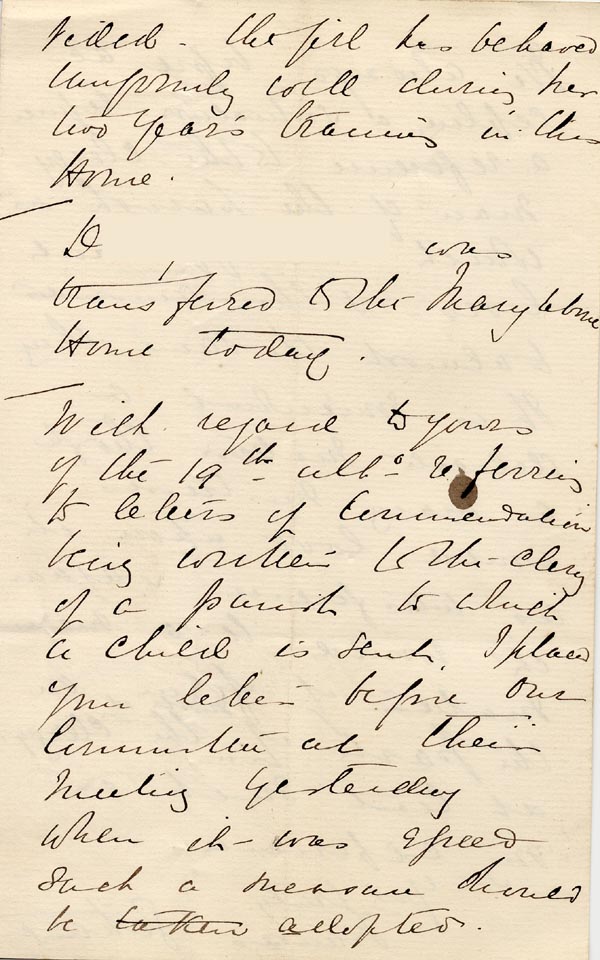 vided - the girl has behaved
uniformly well during her
two years training in this
Home.
D was
transferred to the Marylebone
Home today.
With regard to yours
of the 19th ulto referring
to letters of Commendation
being written to the Clergy
of a parish to which
a child is sent, I placed
your letter before our
Committee at their
Meeting yesterday
when it was agreed
such a measure should
be taken adopted.